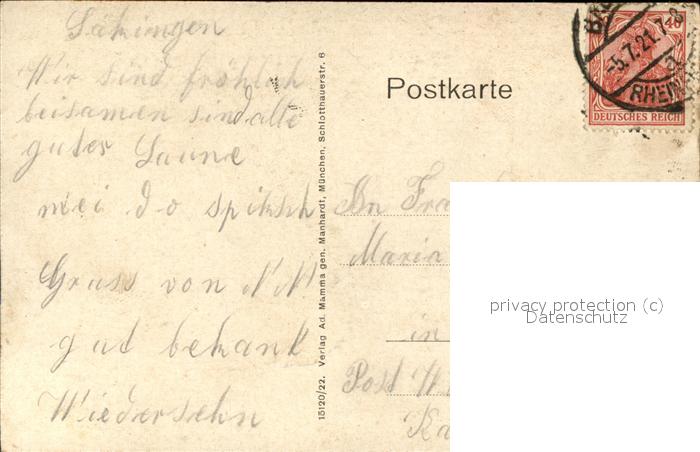 Säkingen
Wir sind fröhlich
beisamen sind alle
guter Laune
mei do spiksch
Gruss von N N
gut bekant
Wiedersehn
15120/22. Verlag Ad. Mamma gen. Manhardt, München, Schlotthauerstr. 6
Postkarte
40
-5.7.21. 7-8
RHEIN
DEUTSCHES REICH
An Fra
Maria
in
Post W
Ka
privacy protection (c)
Datenschutz